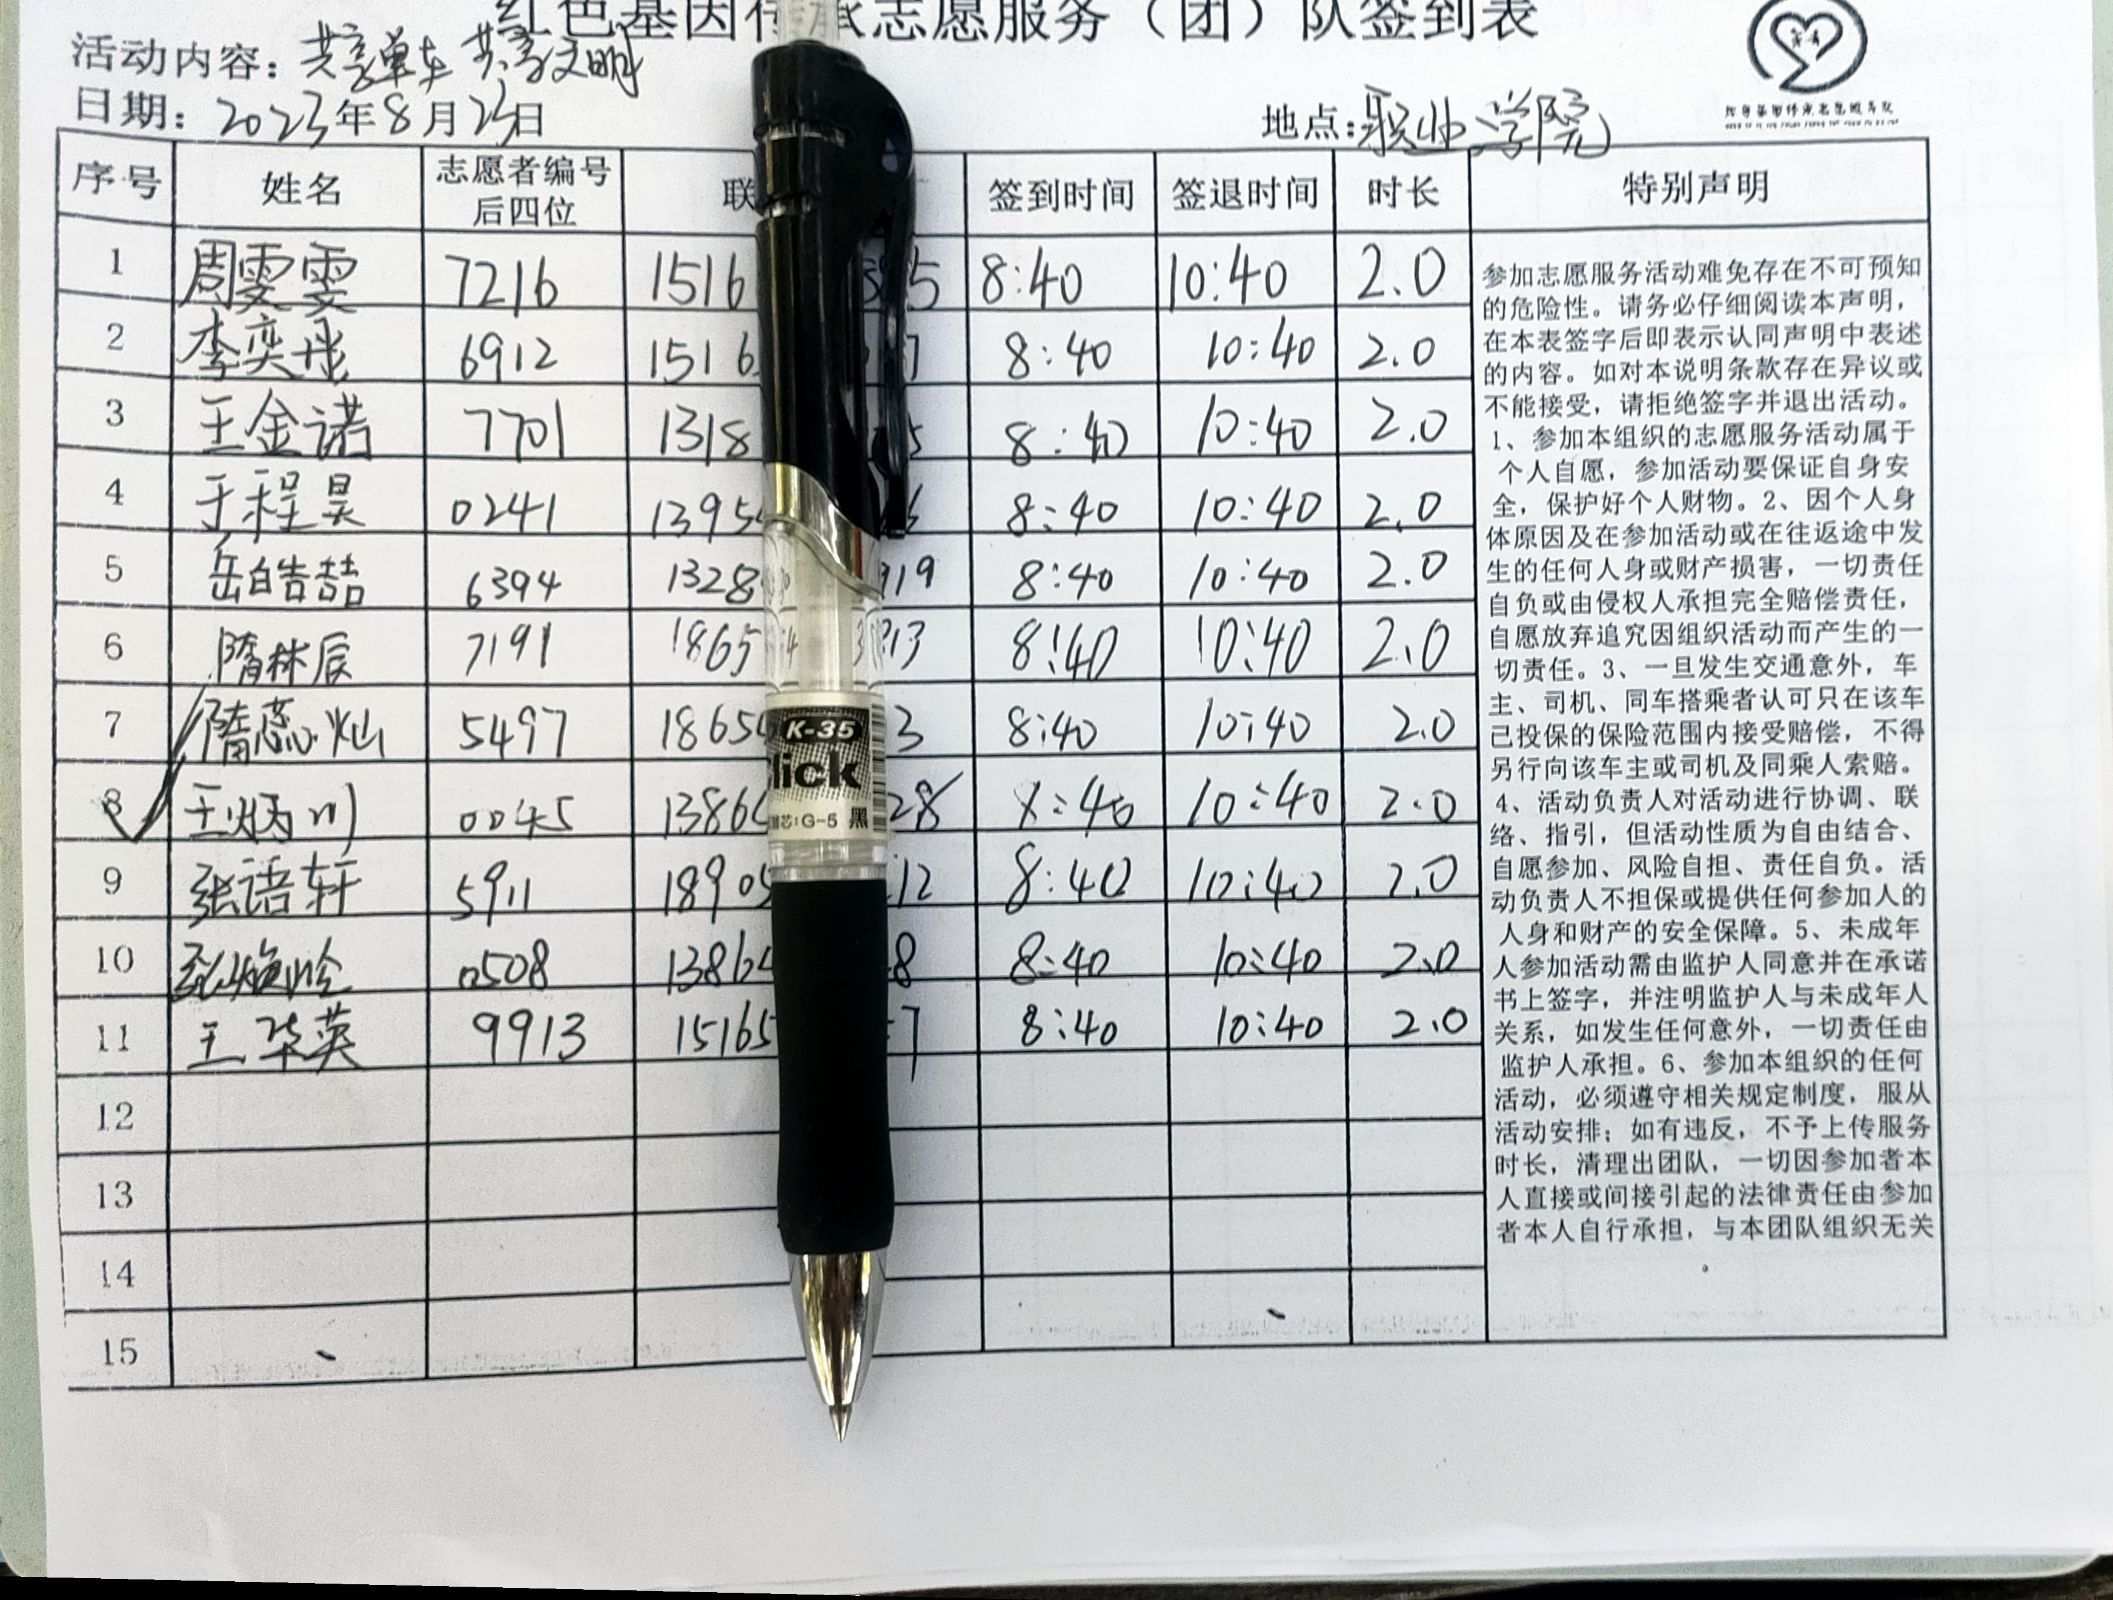 红色基因传承志愿服务（团）队签到表
活动内容：共享单车 共享文明
日期：2023年8月23日
地点：职业学院
序号 姓名 志愿者编号后四位 联 签到时间 签退时间 时长 特别声明
1 周雯雯 7216 1516 5 8:40 10:40 2.0
2 李奕彤 6912 1516 7 8:40 10:40 2.0
3 王金诺 7701 1318 5 8:40 10:40 2.0
4 于程昊 0241 1395 6 8:40 10:40 2.0
5 岳皓喆 6394 1328 919 8:40 10:40 2.0
6 隋林辰 7191 1865 13 8:40 10:40 2.0
7 隋蕊灿 5497 1865 3 8:40 10:40 2.0
8 王炳川 0045 1386 28 8:40 10:40 2.0
9 张语轩 5911 18905 12 8:40 10:40 2.0
10 0508 1386 8 8:40 10:40 2.0
11 王华英 9913 15165 7 8:40 10:40 2.0
12
13
14
15
参加志愿服务活动难免存在不可预知
的危险性。请务必仔细阅读本声明，
在本表签字后即表示认同声明中表述
的内容。如对本说明条款存在异议或
不能接受，请拒绝签字并退出活动。
1、参加本组织的志愿服务活动属于
个人自愿，参加活动要保证自身安
全，保护好个人财物。2、因个人身
体原因及在参加活动或在往返途中发
生的任何人身或财产损害，一切责任
自负或由侵权人承担完全赔偿责任，
自愿放弃追究因组织活动而产生的一
切责任。3、一旦发生交通意外，车
主、司机、同车搭乘者认可只在该车
已投保的保险范围内接受赔偿，不得
另行向该车主或司机及同乘人索赔。
4、活动负责人对活动进行协调、联
络、指引，但活动性质为自由结合、
自愿参加、风险自担、责任自负。活
动负责人不担保或提供任何参加人的
人身和财产的安全保障。5、未成年
人参加活动需由监护人同意并在承诺
书上签字，并注明监护人与未成年人
关系，如发生任何意外，一切责任由
监护人承担。6、参加本组织的任何
活动，必须遵守相关规定制度，服从
活动安排；如有违反，不予上传服务
时长，清理出团队，一切因参加者本
人直接或间接引起的法律责任由参加
者本人自行承担，与本团队组织无关
。
K-35
lick
替芯:G-5 黑